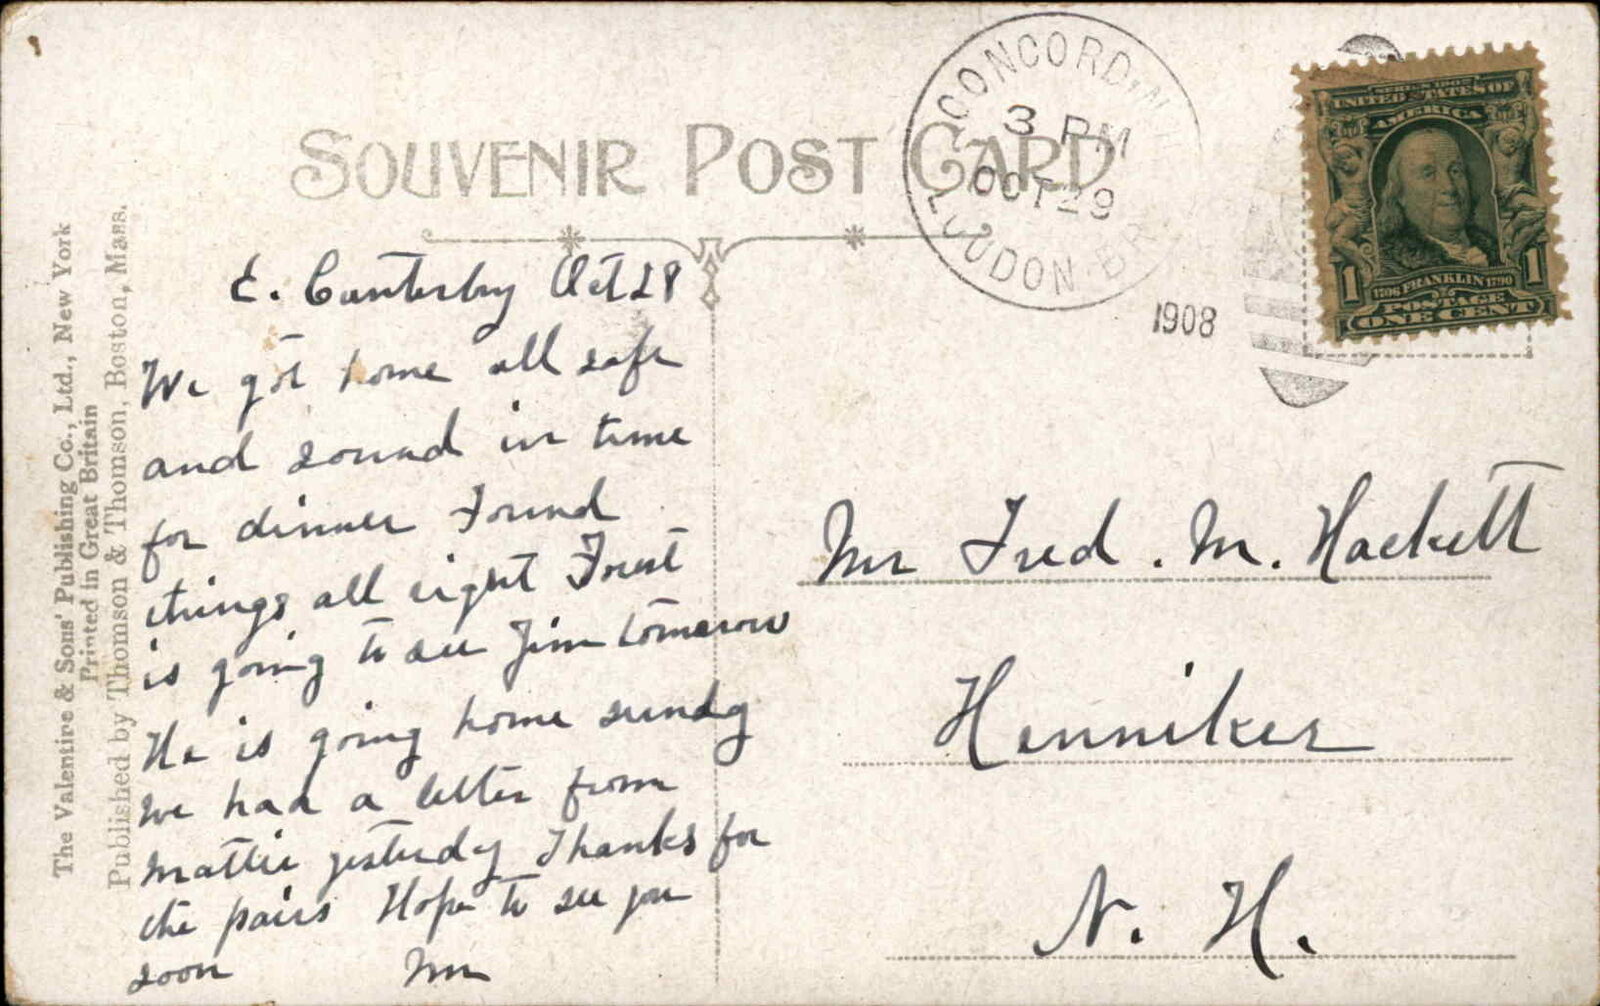 SOUVENIR POST CARD
CONCORD, N.H.
3 PM
OCT 29
1908
LOUDON BR.
SERIES 1902
UNITED STATES OF
AMERICA
1 1
1706 FRANKLIN 1790
POSTAGE
ONE CENT
The Valentine & Sons' Publishing Co., Ltd., New York
Printed in Great Britain
Published by Thomson & Thomson, Boston, Mass.
E. Canterbury Oct 28
We got home all safe
and sound in time
for dinner Found
things all right Forest
is going to see Jim tomorow
He is going home sundy
we had a letter from
Mattie yesterdy Thanks for
the pairs Hope to see you
soon
Mr Fred. M. Hackett
Henniker
N. H.